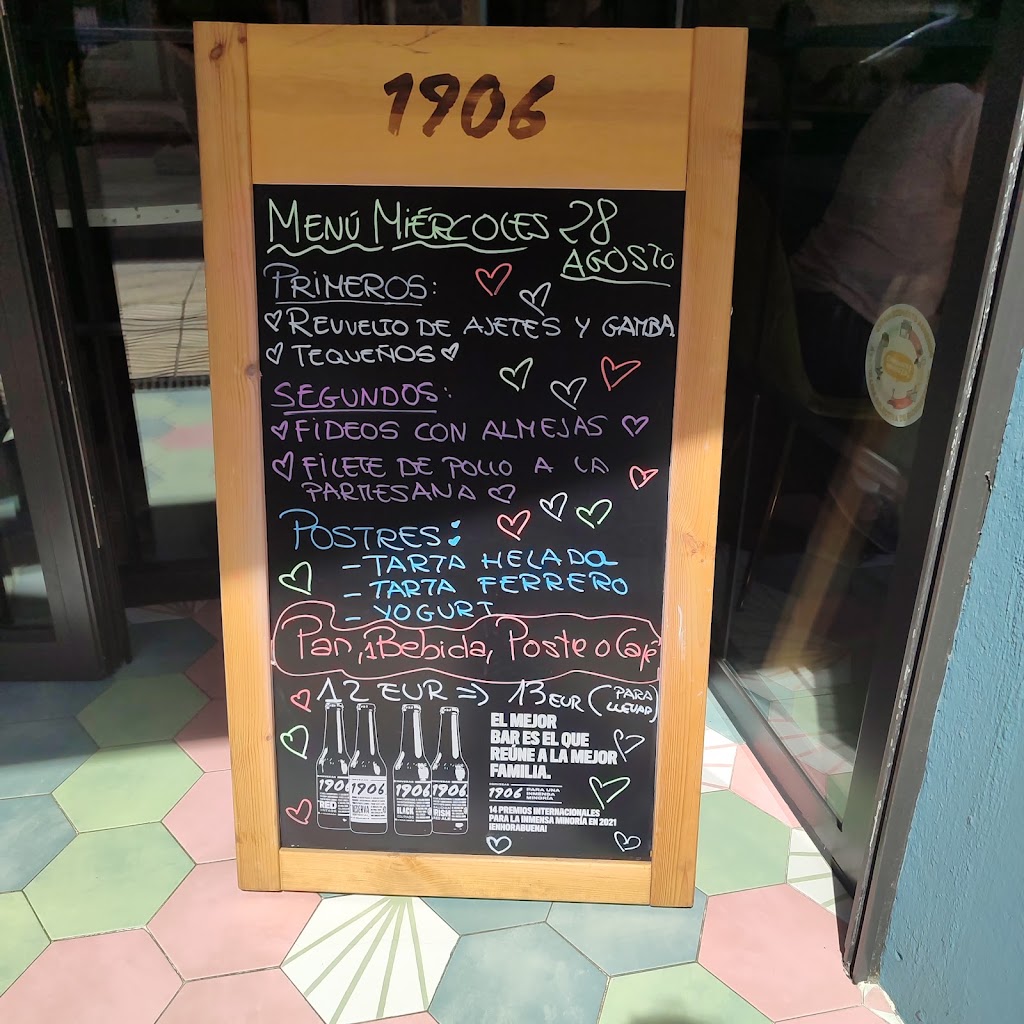 1906
MENÚ MIÉRCOLES 28
AGOSTO
PRIMEROS:
REVUELTO DE AJETES Y GAMBA
TEQUEÑOS
SEGUNDOS:
FIDEOS CON ALMEJAS
FILETE DE POLLO A LA
PARMESANA
POSTRES:
- TARTA HELADA
- TARTA FERRERO
- YOGURT
Pan, 1 Bebida, Poste o Café
12 EUR => 13 EUR (PARA
LLEVAR)
EL MEJOR
BAR ES EL QUE
REÚNE A LA MEJOR
FAMILIA.
1906 PARA UNA
INMENSA
MINORÍA
14 PREMIOS INTERNACIONALES
PARA LA INMENSA MINORÍA EN 2021
¡ENHORABUENA!
1906 1906 1906 1906
RED
BLACK